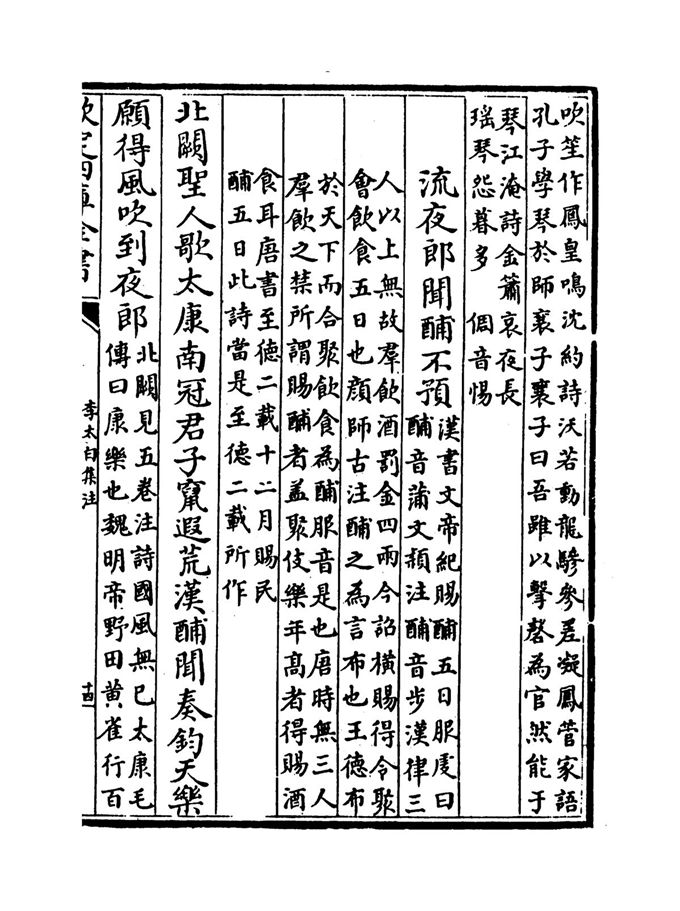 吹笙作鳳皇鳴沈約詩沃若動龍驂參差凝鳳管家語
孔子學琴於師襄子襄子曰吾雖以擊磬為官然能于
琴江淹詩金簫哀夜長
瑶琴怨暮多　倜音惕
流夜郎聞酺不預
漢書文帝紀賜酺五日服虔曰
酺音蒲文頴注酺音步漢律三
人以上無故羣飲酒罰金四兩今詔橫賜得令聚
會飲食五日也顔師古注酺之為言布也王德布
於天下而合聚飲食為酺服音是也唐時無三人
羣飲之禁所謂賜酺者盖聚伎樂年髙者得賜酒
食耳唐書至德二載十二月賜民
酺五日此詩當是至德二載所作
北闕聖人歌太康南冠君子竄遐荒漢酺聞奏鈞天樂
願得風吹到夜郎
北闕見五卷注詩國風無已太康毛
傳曰康樂也魏明帝野田黄雀行百
欽定四庫全書
李太白集注
十四